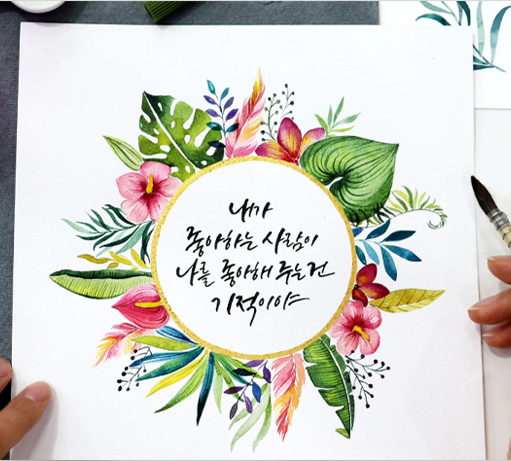 내가
좋아하는 사람이
나를 좋아해 주는건
기적이야